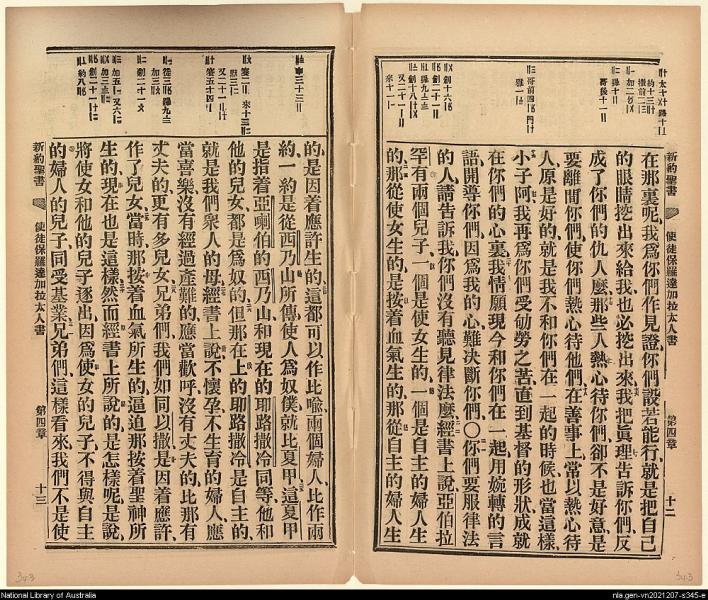 新約聖書
使徒保羅達加拉太人書
第四章
十二
在那裏呢我爲你們作見證你們設若能行就是把自己
的眼睛挖出來給我也必挖出來我把眞理告訴你們反
成了你們的仇人麽那些人熱心待你們卻不是好意是
要離間你們使你們熱心待他們在善事上常以熱心待
人原是好的就是我不和你們在一起的時候也當這樣
小子阿我再爲你們受劬勞之苦直到基督的形狀成就
在你們的心裏我情願現今和你們在一起用婉轉的言
語開導你們因爲我的心難決斷你們〇你們要服律法
的人請告訴我你們沒有聽見律法麽經書上說亞伯拉
罕有兩個兒子一個是使女生的一個是自主的婦人生
的那從使女生的是按着血氣生的那從自主的婦人生
的是因着應許生的這都可以作比喩兩個婦人比作兩
約一約是從西乃山所傳使人爲奴僕就比夏甲這夏甲
是指着亞喇伯的西乃山和現在的耶路撒冷同等他和
他的兒女都是爲奴的但那在上的耶路撒冷是自主的
就是我們衆人的母經書上說不懷孕不生育的婦人應
當喜樂沒有經過產難的應當歡呼沒有丈夫的比那有
丈夫的更有多兒女兄弟們我們如同以撒是因着應許
作了兒女當時那按着血氣所生的逼迫那按着聖神所
生的現在也是這樣然而經書上所說的是怎樣呢是說
將使女和他的兒子逐出因爲使女的兒子不得與自主
的婦人的兒子同受基業兄弟們這樣看來我們不是使
新約聖書
使徒保羅達加拉太人書
第四章
十三
343
343
National Library of Australia
nla.gen-vn2021207-s345-e